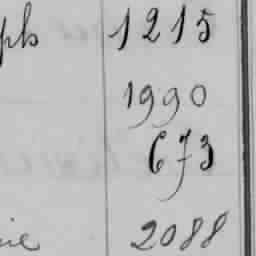 ph 1215
1990
673
ie 2088